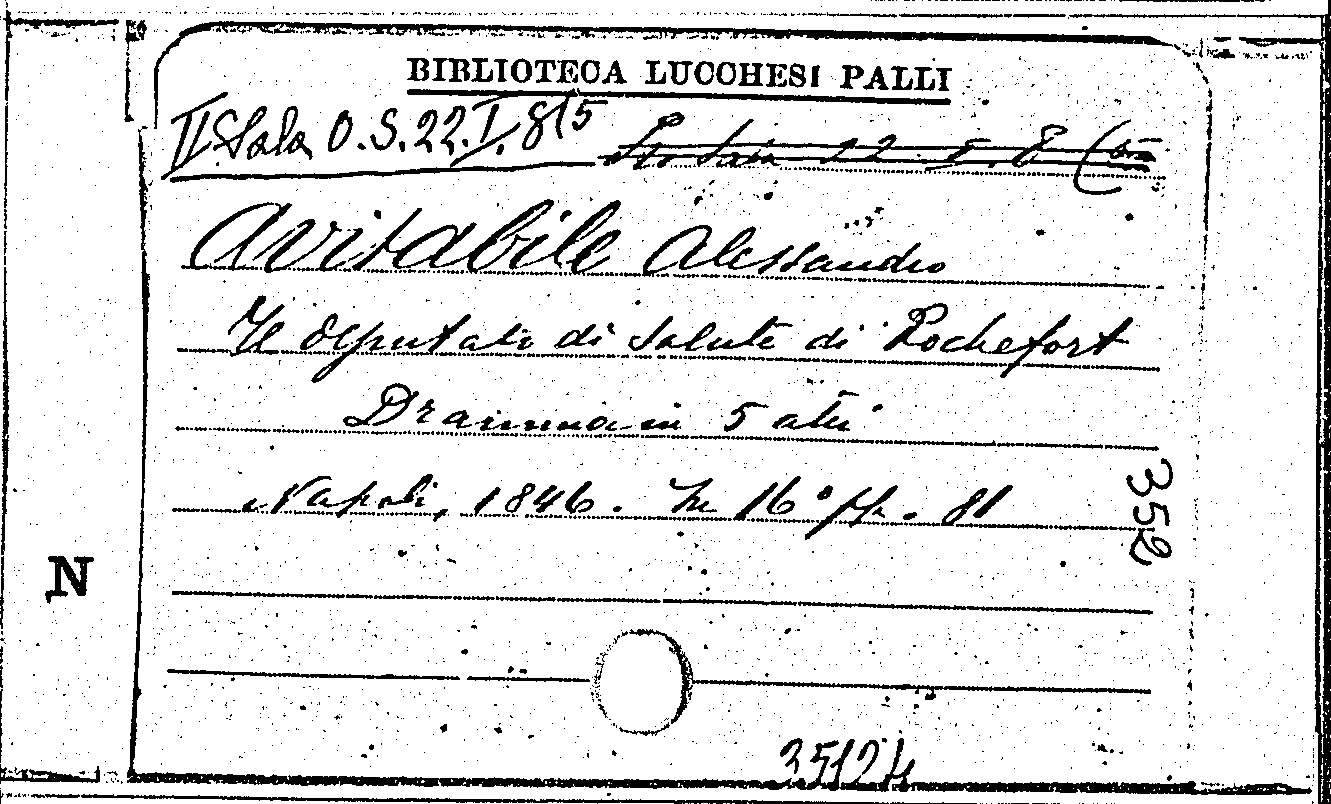 BIBLIOTECA LUCCHESI PALLI
II Sala O.S.22.I.8(5
22 I. 8 (5
Avitabile Alessandro
Il deputato di salute di Rochefort
Dramma in 5 atti
Napoli, 1846. In 16° pp. 81
352
N
35124